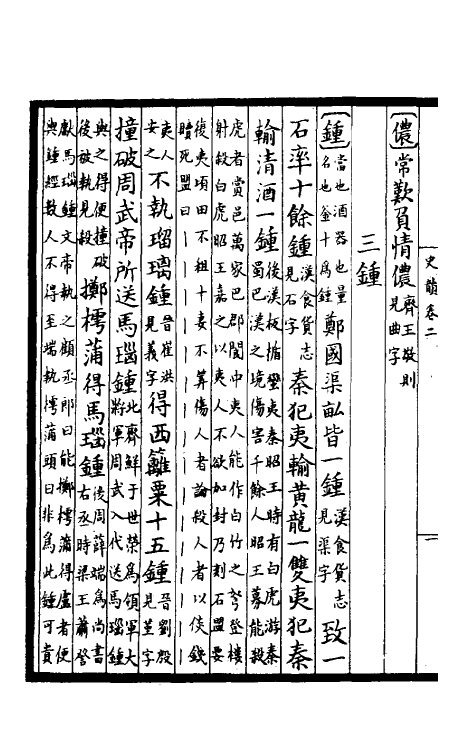 史韻卷二
儂 常歎負情儂 齊王敬則見曲字
三鍾
鍾 當也酒器也量名也釜十爲鍾 鄭國渠畝皆一鍾 漢食貨志見渠字 致一
石率十餘鍾 漢食貨志見石字 秦犯夷輸黄龍一雙夷犯秦
輸清酒一鍾 後漢板楯蠻夷秦昭王時有白虎游秦蜀巴漢之境傷害千餘人昭王募能殺
虎者賞邑萬家巴郡閬中夷人能作白竹之弩登樓射殺白虎昭王嘉之以夷人不欲加封乃刻石盟要
復夷頃田不租十妻不筭傷人者論殺人者以倓錢贖死盟曰
夷人安之 不執瑠璃鍾 晉崔洪見義字 得西籬粟十五鍾 晉劉殷見堇字
撞破周武帝所送馬瑙鍾 北齊鮮于世榮爲領軍大將軍周武入代送馬瑙鍾
與之得便撞破後被執見殺 擲樗蒲得馬瑙鍾 後周薛端爲尚書右丞時梁王蕭詧
獻馬瑙鍾文帝執之顧丞郎曰能擲樗蒲得盧者便與鍾經數人不得至端執樗蒲頭曰非爲此鍾可貴